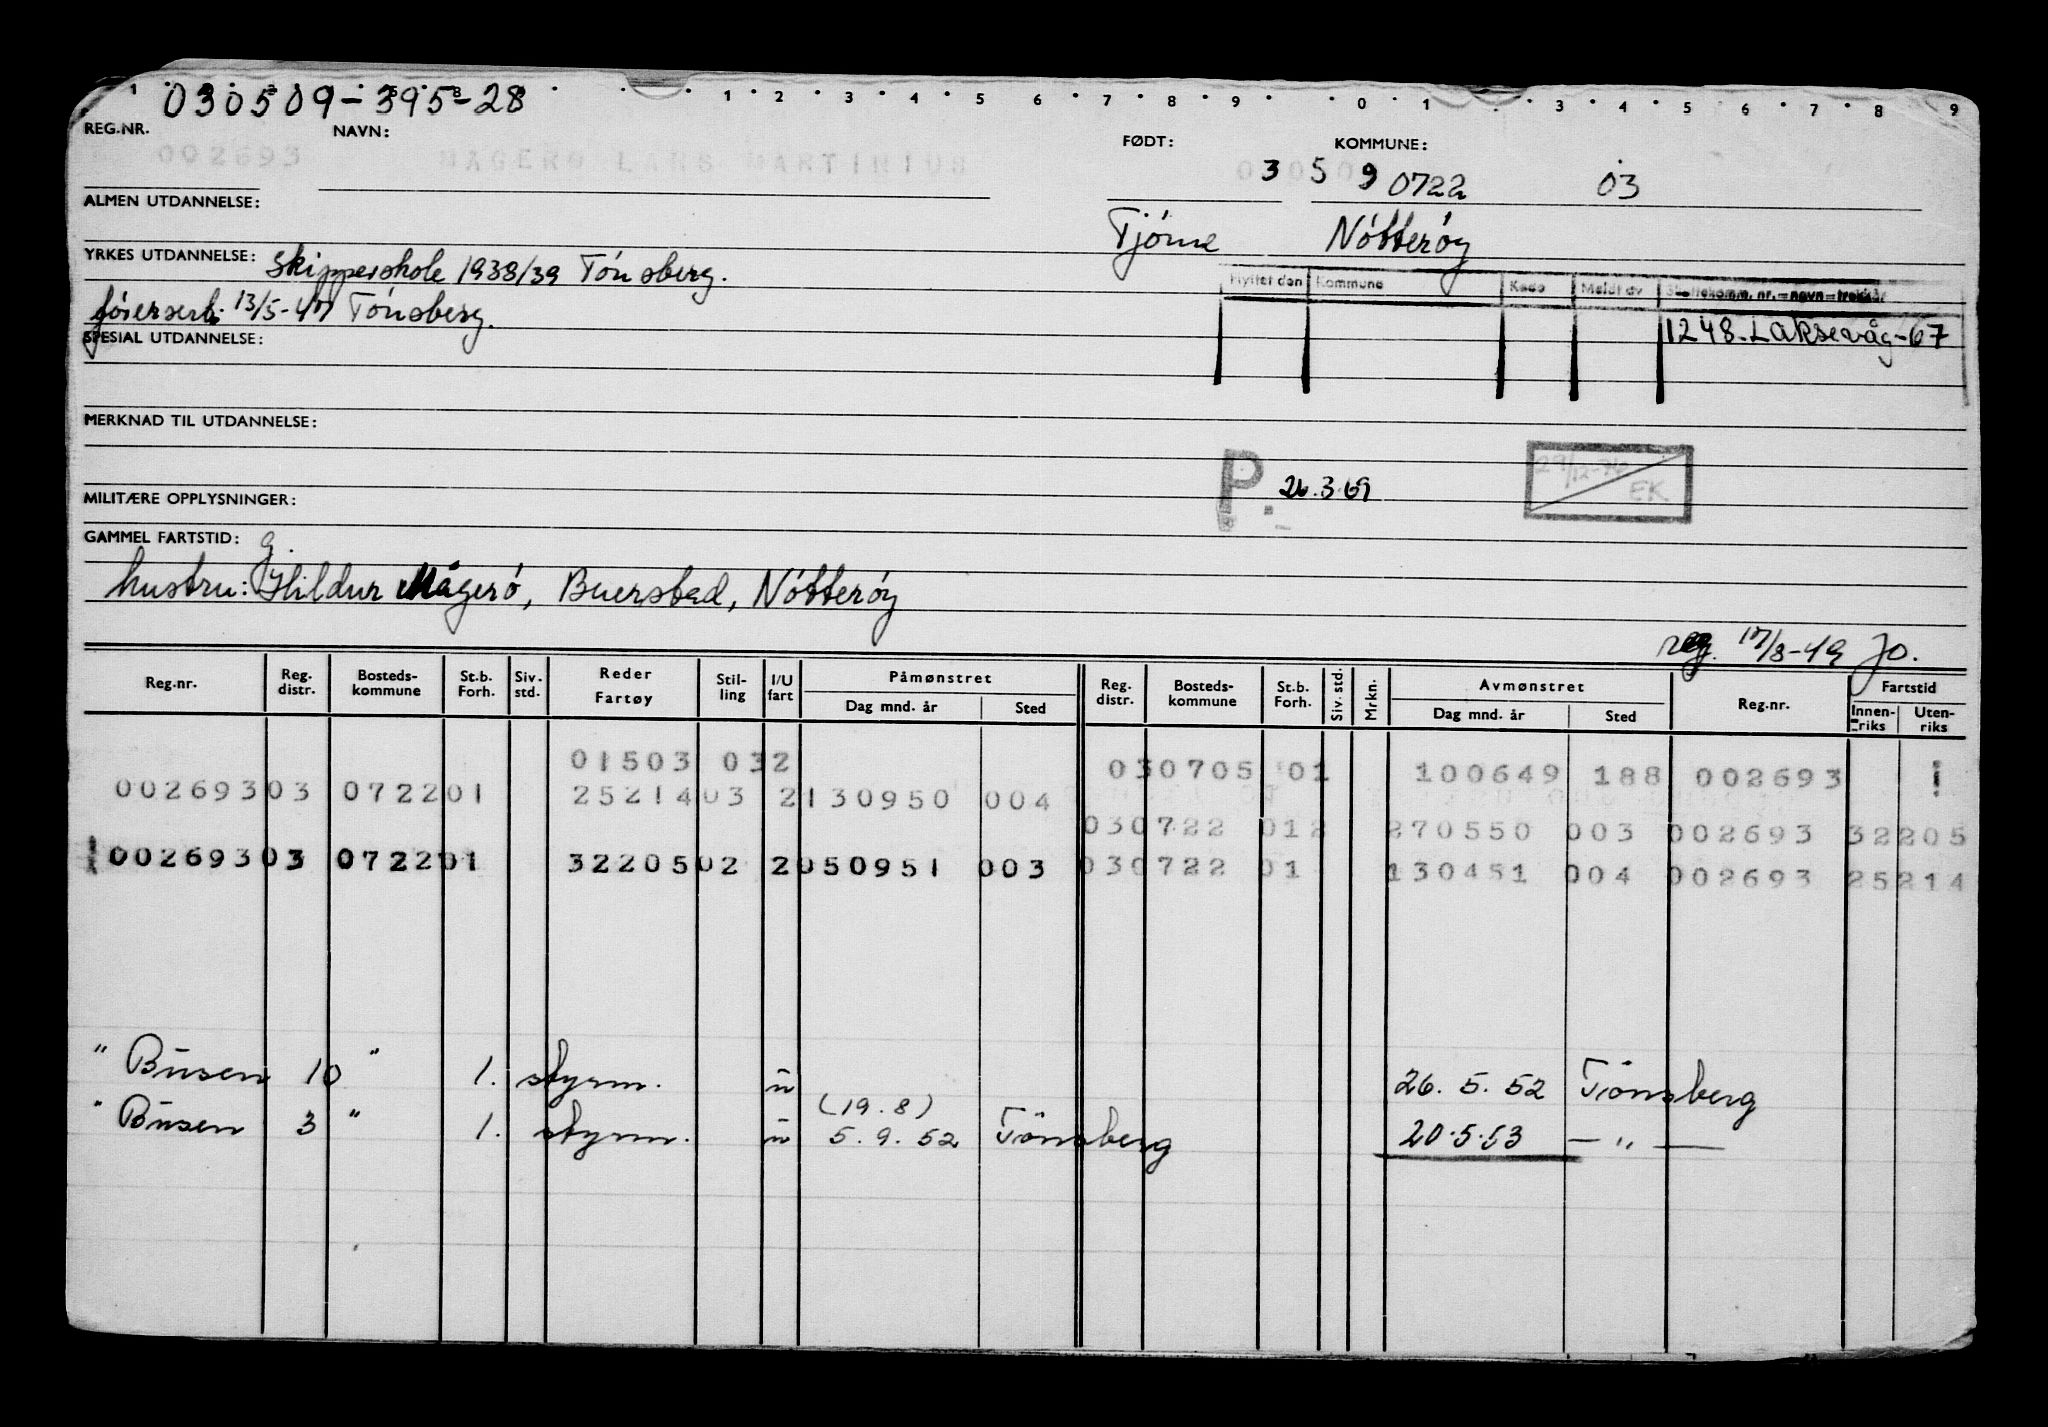 030509-395-28
1 2 3 4 5 6 7 8 9 0 1 3 4 5 6 7 8 9
REG.NR. NAVN: FØDT: KOMMUNE:
002693 MAGERØ LARS MARTINIUS 3 5 9 0722 03
ALMEN UTDANNELSE: Tjöme Nötteröy
YRKES UTDANNELSE: Skipperskole 1938/39 Tönsberg.
Flyttet den Kommune Kode Meldt av
förerserb. 13/5-47 Tönsberg.
1248-Laksevåg-67
SPESIAL UTDANNELSE:
MERKNAD TIL UTDANNELSE:
P. 26.3.69 29/12-76 EK
MILITÆRE OPPLYSNINGER:
GAMMEL FARTSTID: g.
hustru: Hildur Mågerö, Buerstad, Nötteröy
reg. 17/8-49 Jo.
Reg.nr. Reg. distr. Bosteds- kommune St.b. Forh. Siv. std. Reder Fartøy Stil- ling I/U fart Påmønstret Dag mnd. år Sted Reg. distr. Bosteds- kommune St.b. Forh. Siv. std. Mrkn. Avmønstret Dag mnd. år Sted Reg.nr. Fartstid Innen- riks Uten- riks
01503 032 030705 01 100649 188 002693
00269303 072201 2521403 2130950 004
030722 012 270550 003 002693 32205
00269303 072201 3220502 2050951 003 030722 01 130451 004 002693 25214
" Busen 10 " 1. styrm. u 26. 5. 52 Tönsberg
(19.8)
" Busen 3 " 1. styrm. u 5. 9. 52 Tönsberg 20.5.53 — " —